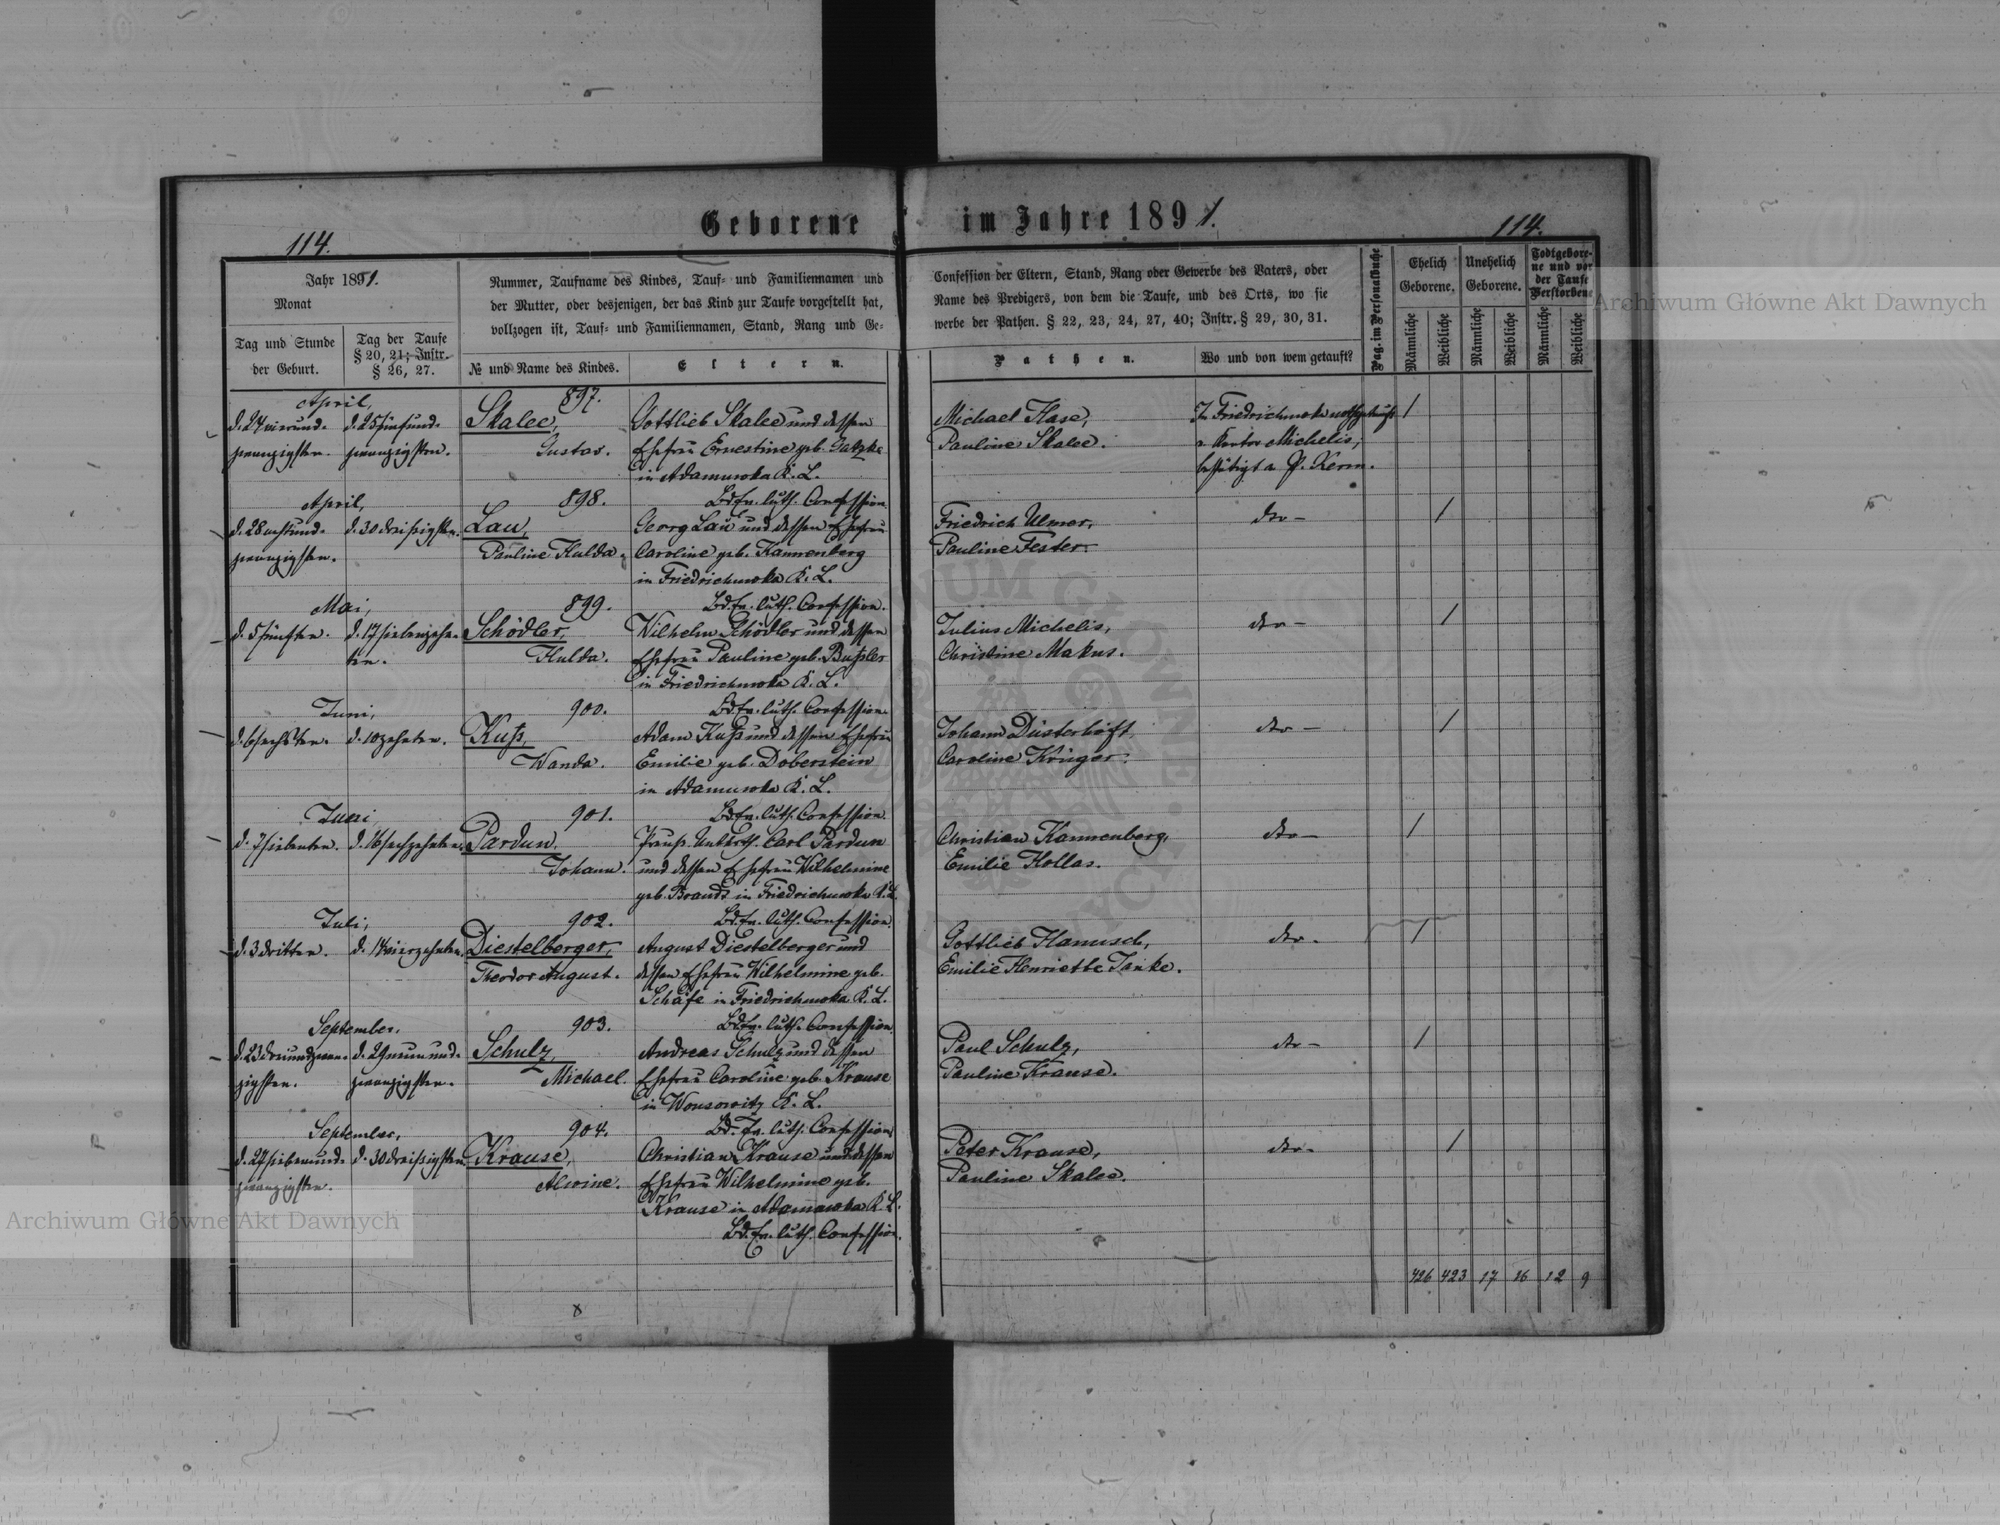 Geborene im Jahre 1891.
114.
114.
Jahr 1891.
Monat
Tag und Stunde
der Geburt.
Tag der Taufe
§ 20, 21; Instr.
§ 26, 27.
Nummer, Taufname des Kindes, Tauf- und Familiennamen und
der Mutter, oder desjenigen, der das Kind zur Taufe vorgestellt hat,
vollzogen ist, Tauf- und Familiennamen, Stand, Rang und Ge-
№ und Name des Kindes.
Eltern.
Confession der Eltern, Stand, Rang oder Gewerbe des Vaters, oder
Name des Predigers, von dem die Taufe, und des Orts, wo sie
werbe der Pathen. § 22, 23, 24, 27, 40; Instr. § 29, 30, 31.
Pathen.
Wo und von wem getauft?
Pag. im Personalbuche
Ehelich
Geborene.
Unehelich
Geborene.
Todtgebore-
ne und vor
der Taufe
Verstorbene
Männliche
Weibliche
Männliche
Weibliche
Männliche
Weibliche
April,
d. 24 vierund-
zwanzigsten.
d. 25 fünfund-
zwanzigsten.
897.
Skalee,
Gustav.
Gottlieb Skalee und dessen
Ehefrau Ernestine geb. Gatzke
in Adamuwka K. L.
Bd. Ev. luth. Confession.
Michael Hase,
Pauline Skalee.
In Friedrichuwka nothgetauft
v. Kantor Michelis,
bestätigt v. P. Kerm.
1
April,
d. 28 achtund-
zwanzigsten.
d. 30 dreißigsten.
898.
Lau,
Pauline Hulda.
Georg Lau und dessen Ehefrau
Caroline geb. Kannenberg
in Friedrichuwka K. L.
Bd. Ev. luth. Confession.
Friedrich Ulmer,
Pauline Fester.
dto –
1
Mai,
d. 5 fünften.
d. 17 siebenzehn-
ten.
899.
Schödler,
Hulda.
Wilhelm Schödler und dessen
Ehefrau Pauline geb. Bußler
in Friedrichuwka K. L.
Bd. Ev. luth. Confession.
Julius Michelis,
Christine Makus.
dto –
1
Juni,
d. 6 sechsten.
d. 10 zehnten.
900.
Kuß,
Wanda.
Adam Kuß und dessen Ehefrau
Emilie geb. Doberstein
in Adamuwka K. L.
Bd. Ev. luth. Confession.
Johann Düsterhöft,
Caroline Krüger.
dto –
1
Juni,
d. 7 siebenten.
d. 16 sechzehnten.
901.
Pardun,
Johann.
Preuß. Unterth. Carl Pardun
und dessen Ehefrau Wilhelmine
geb. Brandt in Friedrichuwka K. L.
Bd. Ev. luth. Confession.
Christian Kannenberg,
Emilie Hollas.
dto –
1
Juli,
d. 3 dritten.
d. 14 vierzehnten.
902.
Diestelberger,
Theodor August.
August Diestelberger und
dessen Ehefrau Wilhelmine geb.
Schäfe in Friedrichuwka K. L.
Bd. Ev. luth. Confession.
Gottlieb Hanusch,
Emilie Henriette Janke.
dto.
1
September,
d. 23 dreiundzwan-
zigsten.
d. 29 neunund-
zwanzigsten.
903.
Schulz,
Michael.
Andreas Schulz und dessen
Ehefrau Caroline geb. Krause
in Wonsowitz K. L.
Bd. Ev. luth. Confession
Paul Schulz,
Pauline Krause.
dto –
1
September,
d. 27 siebenund-
zwanzigsten.
d. 30 dreißigsten.
904.
Krause,
Alwine.
Christian Krause und dessen
Ehefrau Wilhelmine geb.
Krause in Adamuwka K. L.
Bd. Ev. luth. Confession.
Peter Krause,
Pauline Skalee.
dto.
1
426 423 17 16 12 9
Archiwum Główne Akt Dawnych
Archiwum Główne Akt Dawnych